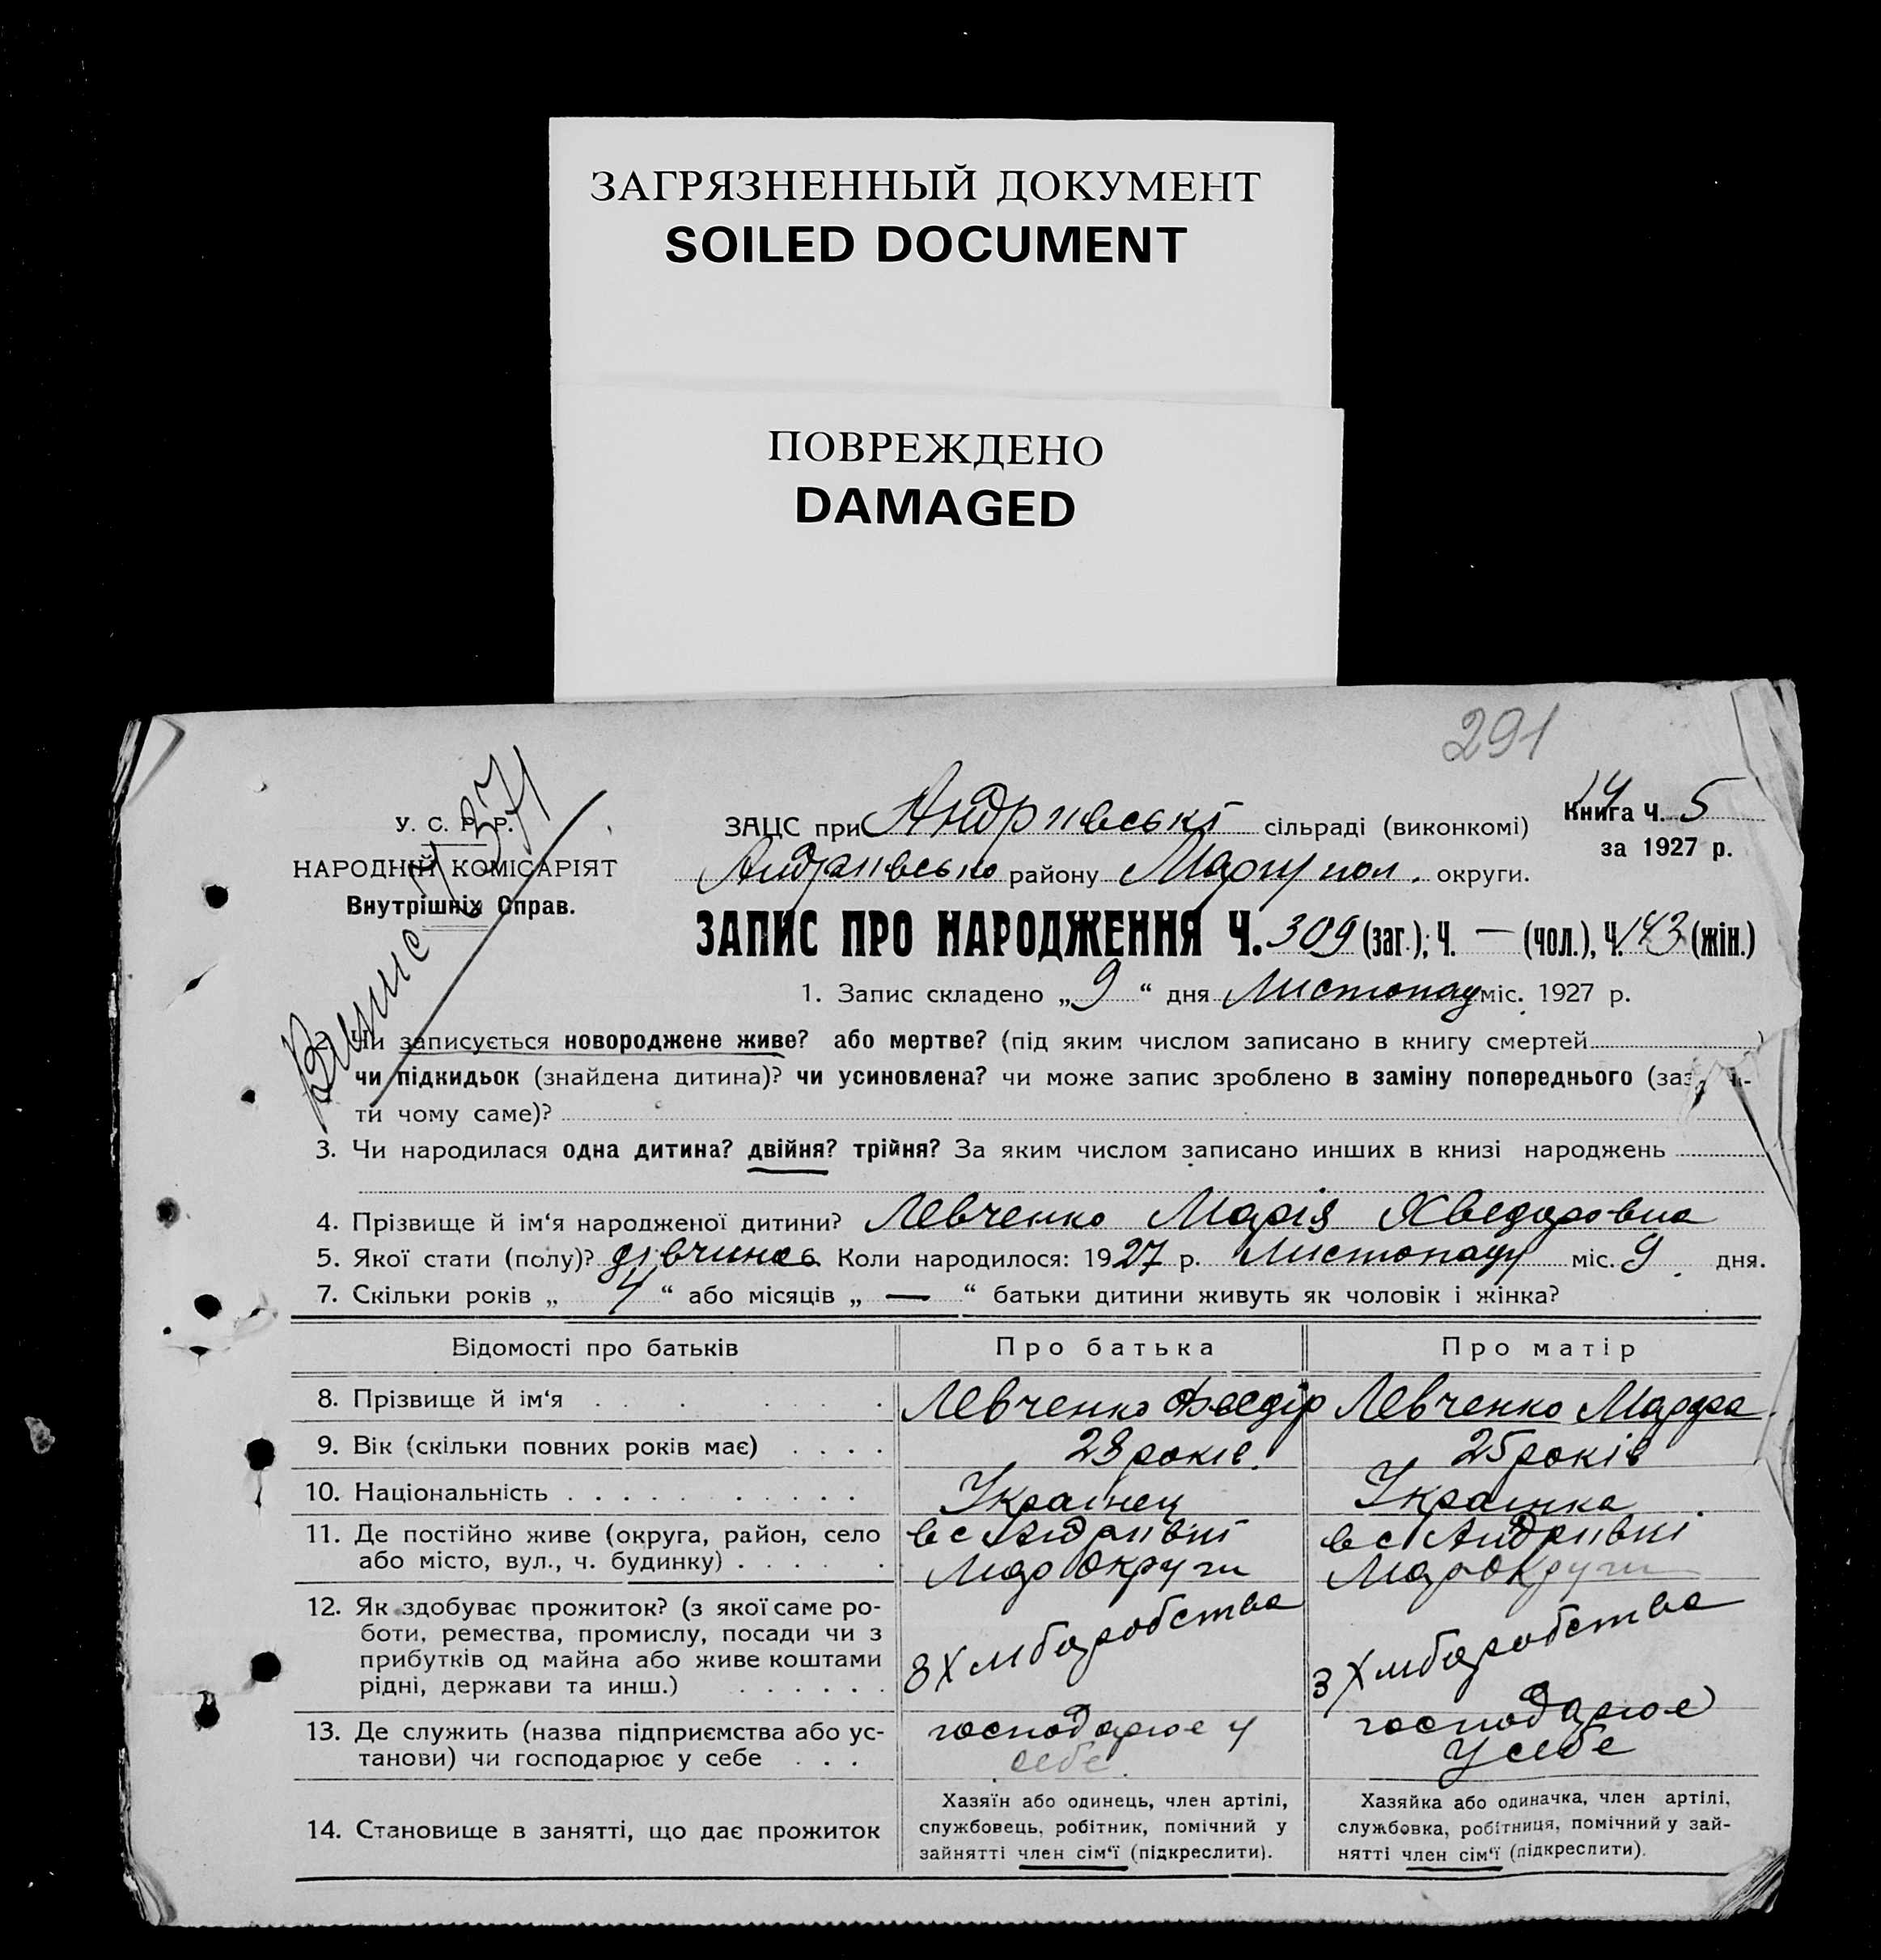 ЗАГРЯЗНЕННЫЙ ДОКУМЕНТ
SOILED DOCUMENT
ПОВРЕЖДЕНО
DAMAGED
291
У. С. Р. Р.
НАРОДНІЙ КОМІСАРІЯТ
Внутрішніх Справ.
ЗАЦС при Андриівські сільраді (виконкомі)
Книга Ч. 5
за 1927 р.
Андріівсько району Маріупол. округи.
ЗАПИС ПРО НАРОДЖЕННЯ Ч. 309 (заг.); Ч. — (чол.), Ч. 143 (жін.)
1. Запис складено „ 9 “ дня Листопаду міс. 1927 р.
2. Чи записується новороджене живе? або мертве? (під яким числом записано в книгу смертей )
чи підкидьок (знайдена дитина)? чи усиновлена? чи може запис зроблено в заміну попереднього
ти чому саме)?
3. Чи народилася одна дитина? двійня? трійня? За яким числом записано инших в книзі народжень
4. Прізвище й ім‘я народженої дитини? Левченко Марія Хведоровна
5. Якої стати (полу)? дівчина 6. Коли народилося: 1927 р. Листопаду міс. 9 дня.
7. Скільки років „ 4 “ або місяців „ — “ батьки дитини живуть як чоловік і жінка?
Відомості про батьків Про батька Про матір
8. Прізвище й ім‘я Левченко Феедір Левченко Марфа
9. Вік (скільки повних років має) 28 років. 25 років
10. Національність Украінец Украінка
11. Де постійно живе (округа, район, село в с Андріівні в с Андріівні
або місто, вул., ч. будинку) Мар Округи Мар Округи
12. Як здобуває прожиток? (з якої саме ро-
боти, ремества, промислу, посади чи з
прибутків од майна або живе коштами
рідні, держави та инш.)
З Хлиборобства З Хлиборобства
13. Де служить (назва підприємства або ус- господарює у господарює
танови) чи господарює у себе себе у себе
14. Становище в занятті, що дає прожиток
Хазяїн або одинець, член артілі,
службовець, робітник, помічний у
зайнятті член сім‘ї (підкреслити).
Хазяйка або одиначка, член артілі,
службовка, робітниця, помічний у зай-
нятті член сім‘ї (підкреслити).